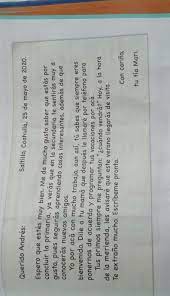 Saltillo, Coahuila, 25 de mayo de 2020.
Querido Andrés:
Espero que estés muy bien. Me da mucho gusto saber que estás por
concluir la primaria, ya verás que en la secundaria te sentirás muy a
gusto, pues seguirás aprendiendo cosas interesantes, además de que
conocerás nuevos amigos.
Yo por acá con mucho trabajo, aun así, tú sabes que siempre eres
bienvenido. Dile a tu mamá que después le llamaré por teléfono para
ponernos de acuerdo y programar tus vacaciones por acá.
Tus primos siempre me preguntan: "¿cuándo vendrá?" Hoy, a la hora
de la merienda, les avisaré que este verano llegarás de visita.
Te extraño mucho. Escríbeme pronto.
Con cariño,
tu tía Mari.